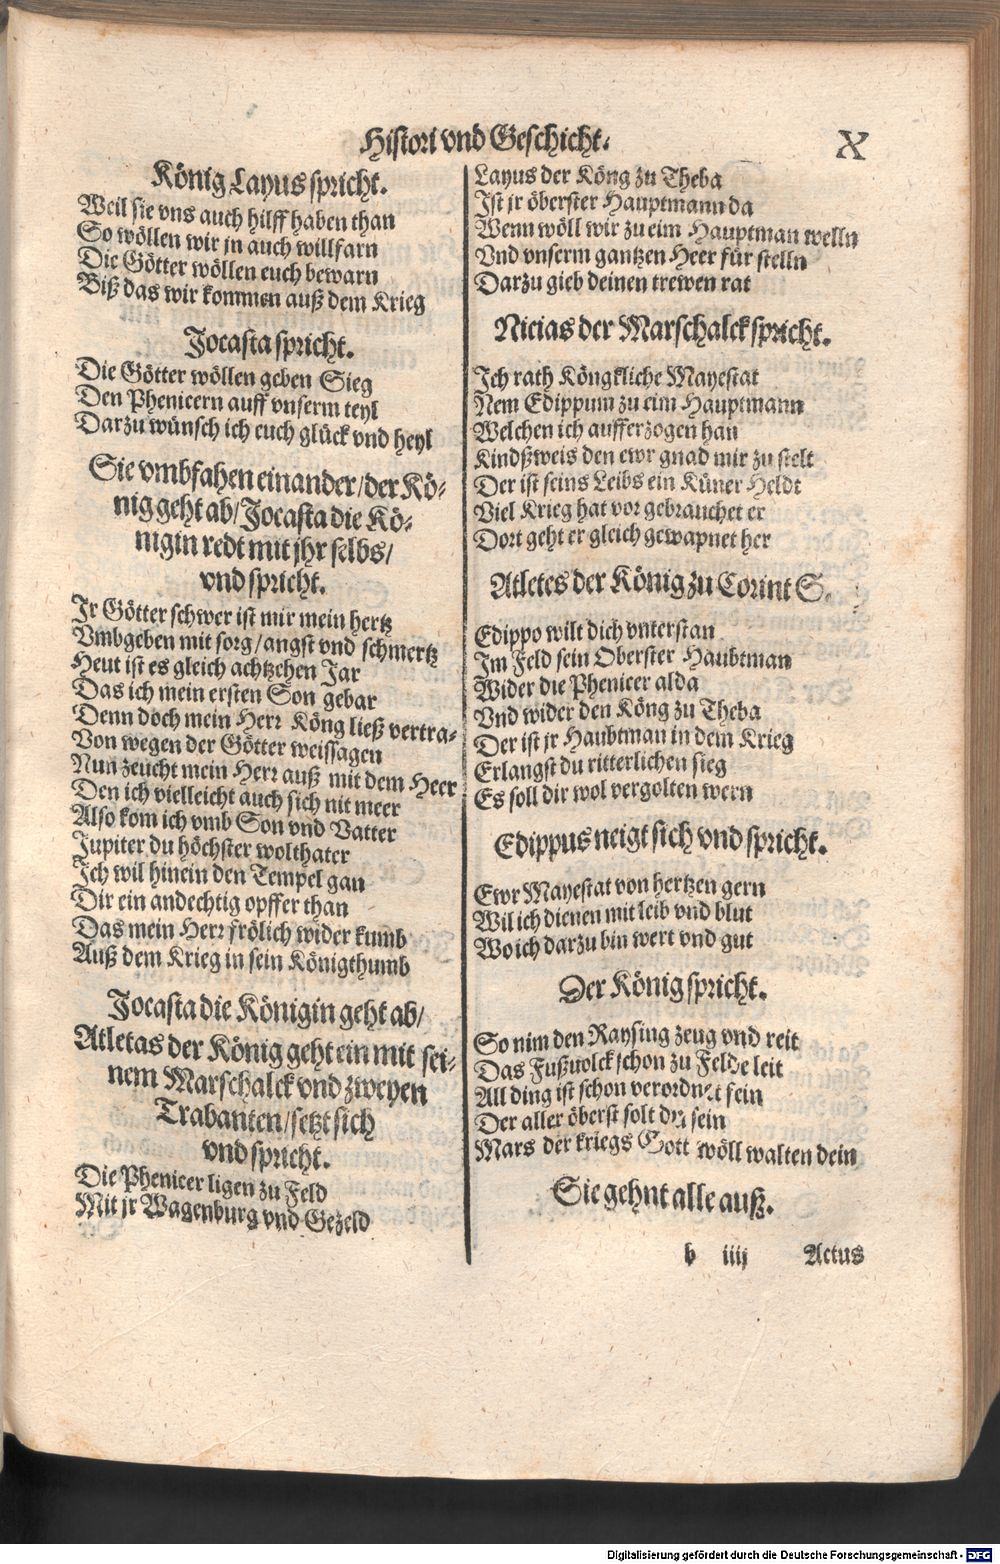 Histori vnd Geschicht.
X
König Layus spricht.
Weil sie vns auch hilff haben than
So wöllen wir jn auch willfarn
Die Götter wöllen euch bewarn
Biß das wir kommen auß dem Krieg
Jocasta spricht.
Die Götter wöllen geben Sieg
Den Phenicern auff vnserm teyl
Darzu wünsch ich euch glück vnd heyl
Sie vmbfahen einander/ der Kö-
nig geht ab/ Jocasta die Kö-
nigin redt mit jhr selbs/
vnd spricht.
Jr Götter schwer ist mir mein hertz
Vmbgeben mit sorg/ angst vnd schmertz
Heut ist es gleich achtzehen Jar
Das ich mein ersten Son gebar
Denn doch mein Herr Köng ließ vertra-
Von wegen der Götter weissagen
Nun zeucht mein Herr auß mit dem Heer
Den ich vielleicht auch sich nit meer
Also kom ich vmb Son vnd Vatter
Jupiter du höchster wolthater
Ich wil hinein den Tempel gan
Dir ein andechtig opffer than
Das mein Herr frölich wider kumb
Auß dem Krieg in sein Königthumb
Jocasta die Königin geht ab/
Atletas der König geht ein mit sei-
nem Marschalck vnd zweyen
Trabanten/ setzt sich
vnd spricht.
Die Phenicer ligen zu Feld
Mit jr Wagenburg vnd Gezeld
Layus der Köng zu Theba
Ist jr öberster Hauptmann da
Wenn wöll wir zu eim Hauptman welln
Vnd vnserm gantzen Heer für stelln
Darzu gieb deinen trewen rat
Nicias der Marschalck spricht.
Ich rath Köngkliche Mayestat
Nem Edippum zu eim Hauptmann
Welchen ich aufferzogen han
Kindßweis den ewr gnad mir zu stelt
Der ist seins Leibs ein Küner Heldt
Viel Krieg hat vor gebrauchet er
Dort geht er gleich gewapnet her
Atletes der König zu Corint S.
Edippo wilt dich vnterstan
Im Feld sein Oberster Haubtman
Wider die Phenicer alda
Vnd wider den Köng zu Theba
Der ist jr Haubtman in dem Krieg
Erlangst du ritterlichen sieg
Es soll dir wol vergolten wern
Edippus neigt sich vnd spricht.
Ewr Mayestat von hertzen gern
Wil ich dienen mit leib vnd blut
Wo ich darzu bin wert vnd gut
Der König spricht.
So nim den Raysing zeug vnd reit
Das Fußuolck schon zu Felde leit
All ding ist schon verordnet fein
Der aller öberst solt du sein
Mars der kriegs Gott wöll walten dein
Sie gehnt alle auß.
b iiij Actus
Digitalisierung gefördert durch die Deutsche Forschungsgemeinschaft - DFG